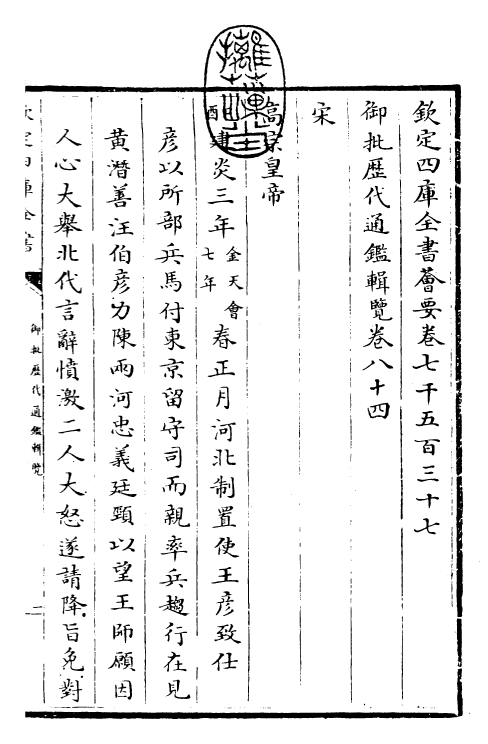 欽定四庫全書薈要卷七千五百三十七
御批歷代通鑑輯覽卷八十四
宋
高宗皇帝
己酉建炎三年金天會七年春正月河北制置使王彦致仕
彦以所部兵馬付東京留守司而親率兵趨行在見
黄潛善汪伯彦力陳兩河忠義延頸以望王師願因
人心大舉北伐言辭憤激二人大怒遂請降旨免對
欽定四庫全書
御批歷代通鑑輯覽